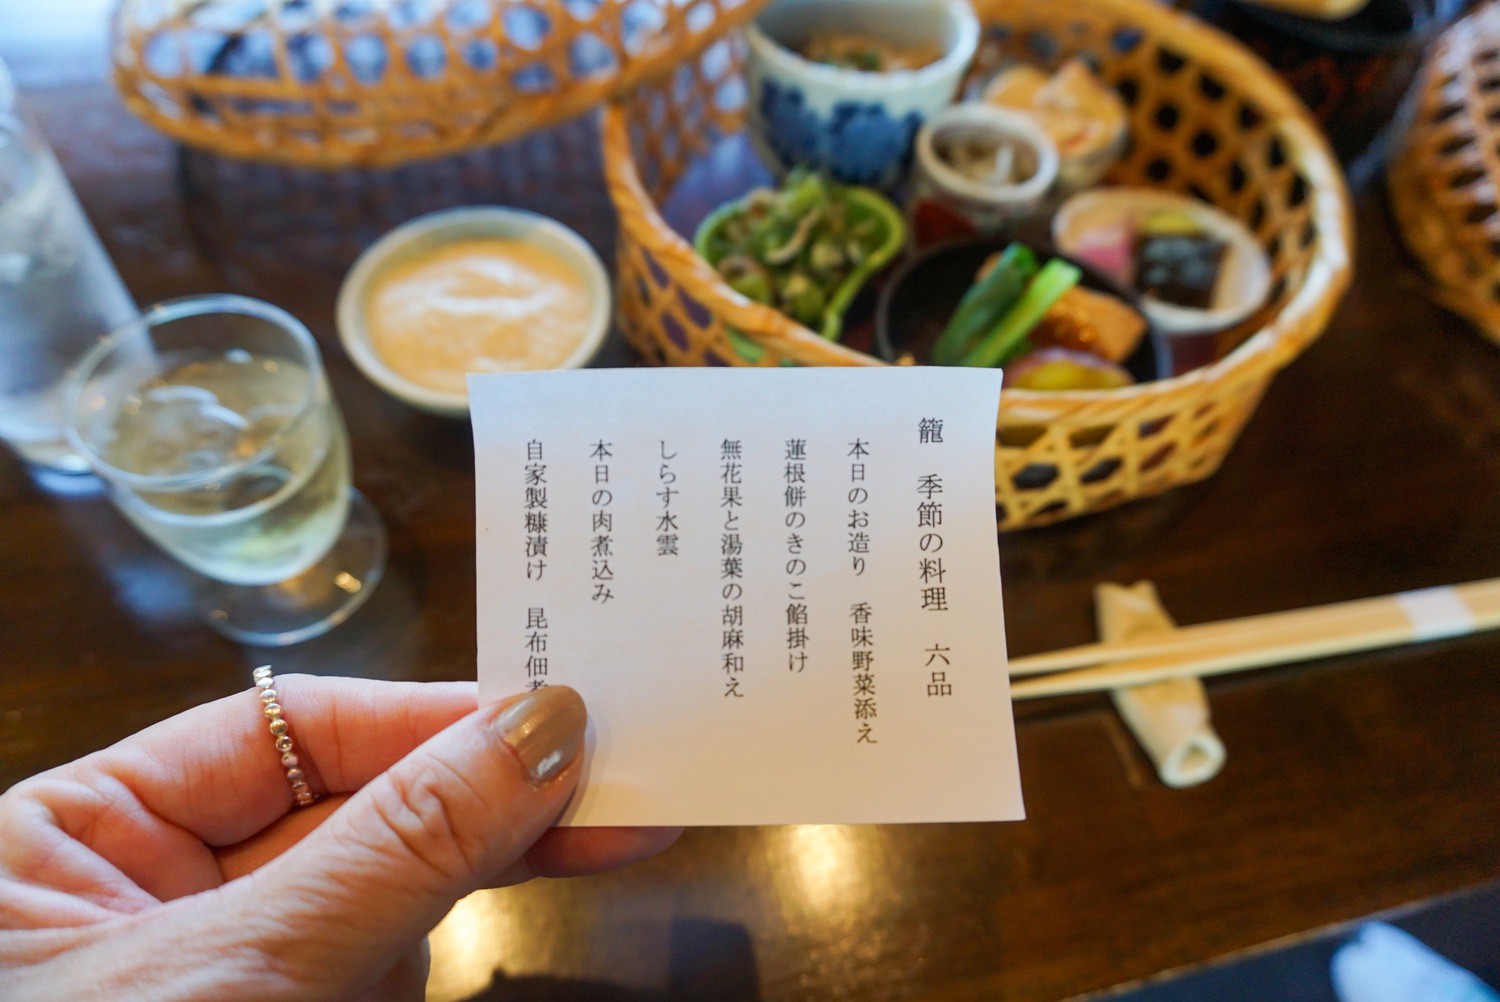 籠　季節の料理　六品
本日のお造り　香味野菜添え
蓮根餅のきのこ餡掛け
無花果と湯葉の胡麻和え
しらす水雲
本日の肉煮込み
自家製糠漬け　昆布佃煮